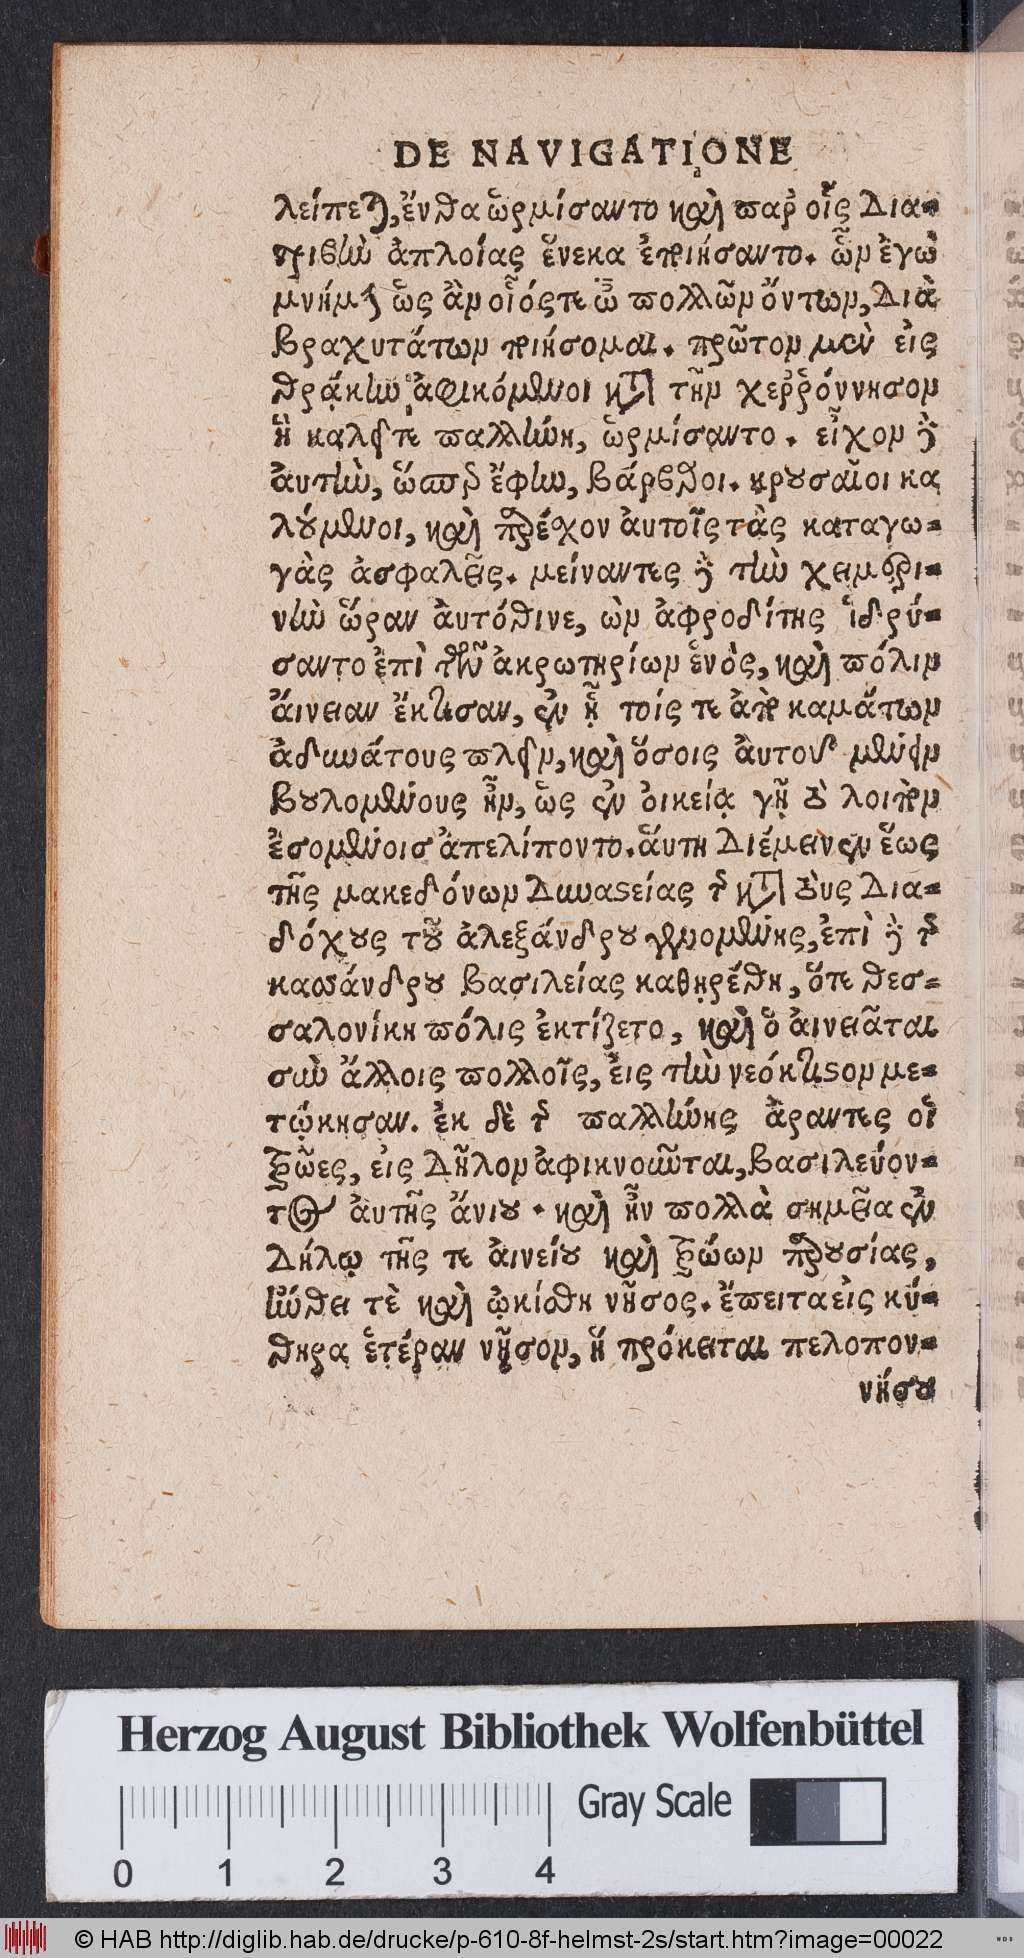 DE NAVIGATIONE
λείπεται, ἔνθα ὡρμίσαντο καὶ παρ' οἷς Δια-
τριβὴν ἀπλοίας ἕνεκα ἐποιήσαντο. ὧν ἐγὼ
μνήμην ὡς ἂν οἷός τε ὦ πολλῶν ὄντων, Διὰ
βραχυτάτων ποιήσομαι. πρῶτον μὲν εἰς
θρᾴκην ἀφικόμενοι κατὰ τὴν χερρόννησον
ἣ καλεῖται παλλήνη, ὡρμίσαντο. εἶχον δὲ
ἀυτὴν, ὥσπερ ἔφην, βάρβαροι. κρουσαῖοι κα
λούμενοι, καὶ παρέχον ἀυτοῖς τὰς καταγω-
γὰς ἀσφαλεῖς. μείναντες δὲ τὴν χειμερι-
νὴν ὥραν ἀυτόθινε, ὼν ἀφροδίτης ἱδρύ-
σαντο ἐπὶ τῶν ἀκρωτηρίων ἑνὸς, καὶ πόλιν
ἄινειαν ἔκτισαν, ἐν ᾗ τοίς τε ἀπὸ καμάτων
ἀδυνάτους πλεῖν, καὶ ὅσοις ἀυτοῦ μένειν
βουλομένους ἦν, ὡς ἐν ὀικείᾳ γῇ τὸ λοιπὸν
ἐσομένοισ ἀπελίποντο. ἅυτη Διέμεινεν ἕως
τῆς μακεδόνων Δυναστείας τῆς κατὰ τοὺς Δια-
δόχους τοῦ ἀλεξάνδρου γενομένης, ἐπὶ δὲ τῆς
κασσάνδρου βασιλείας καθῃρέθη, ὅτε θεσ-
σαλονίκη πόλις ἐκτίζετο, καὶ ὁ ἀινειᾶται
σὺν ἄλλοις πολλοῖς, ἐις τὴν νεόκτιστον με-
τῴκησαν. ἐκ δὲ τῆς παλλήνης ἄραντες οἱ
τρῶες, εἰς Δῆλον ἀφικνοῦνται, βασιλεύον-
τος ἀυτῆς ἄνιου. καὶ ἦν πολλὰ σημεῖα ἐν
Δήλῳ τῆς τε ἀινείου καὶ τρώων παρουσίας,
ἤνθει τὲ καὶ ᾠκίσθη νῆσος. ἔπειτα εἰς κύ-
θηρα ἑτέραν νῆσον, ἣ πρόκειται πελοπον-
νήσου
Herzog August Bibliothek Wolfenbüttel
Gray Scale
0 1 2 3 4
© HAB http://diglib.hab.de/drucke/p-610-8f-helmst-2s/start.htm?image=00022